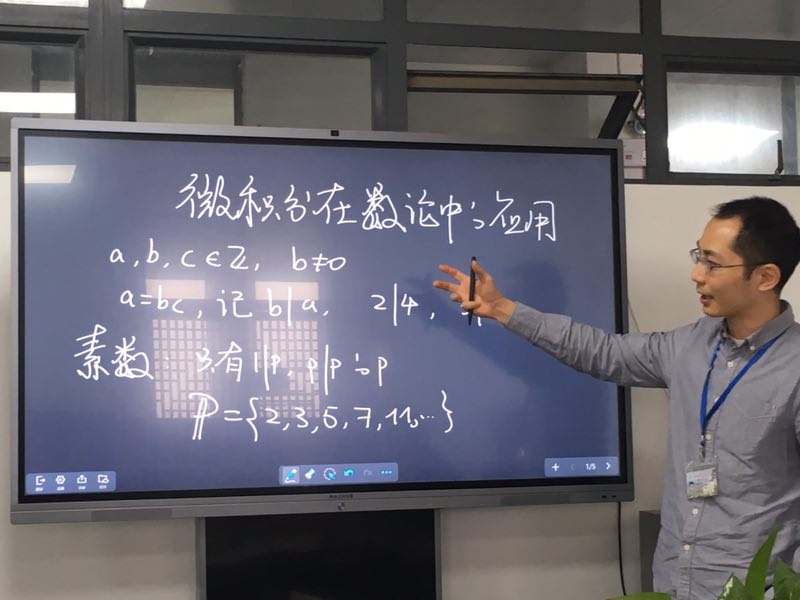 微积分在数论中的应用
a, b, c ∈ ℤ, b≠0
a=bc, 记 b|a, 2|4,
素数: 只有 1|p, p|p 的 p
ℙ={2,3,5,7,11,…}
1/5